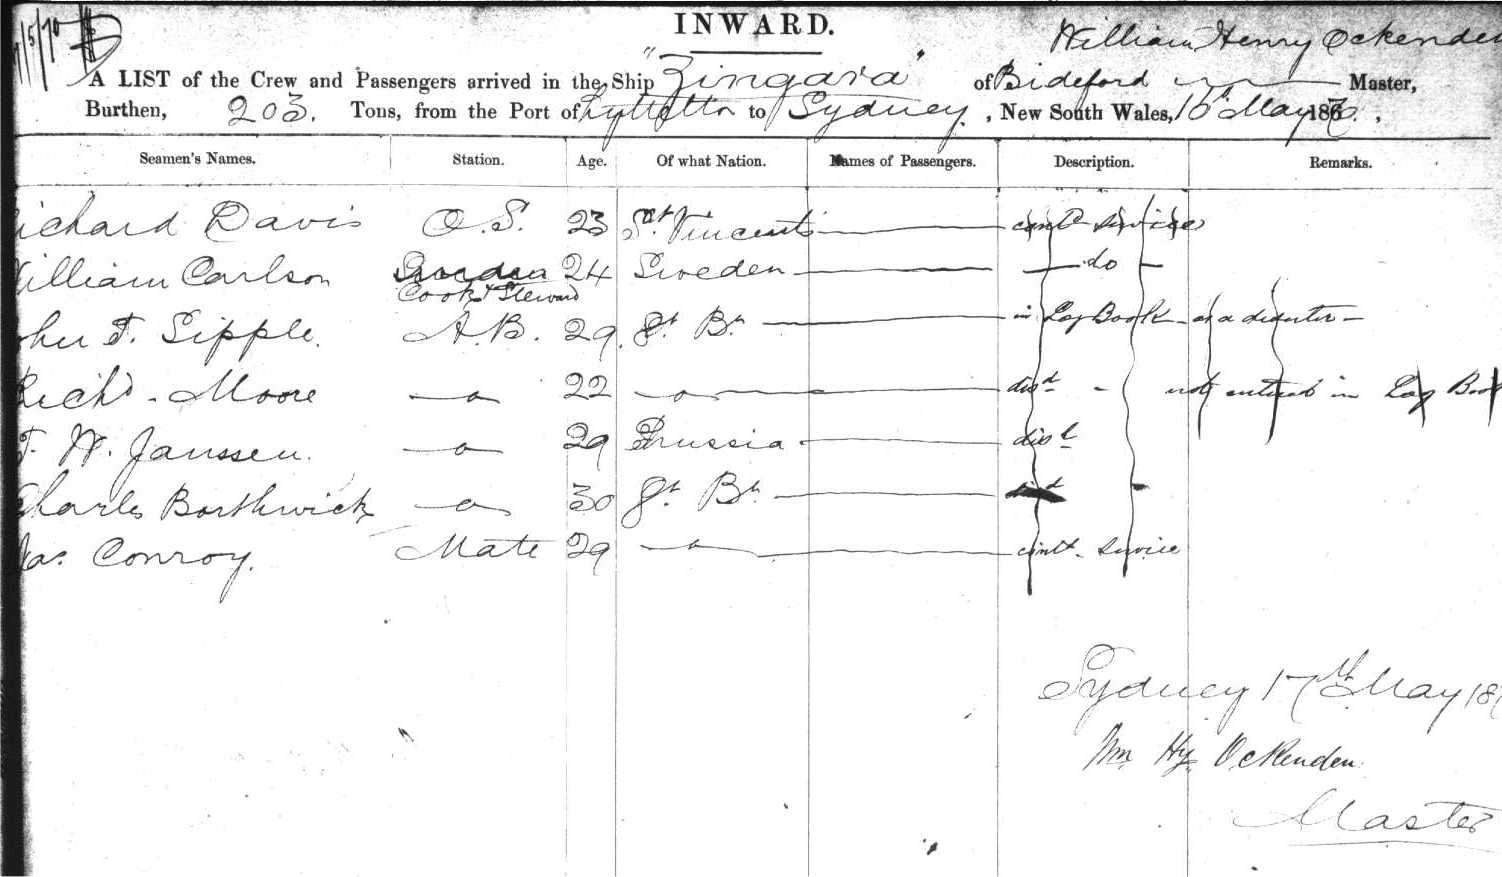 /5/70
INWARD.
William Henry Ockenden
A LIST of the Crew and Passengers arrived in the Ship "Zingara" of Bideford Master,
Burthen, 203. Tons, from the Port of Lyttelton to Sydney, New South Wales, 16th May 1870,
Seamen's Names. Station. Age. Of what Nation. Names of Passengers. Description. Remarks.
ichard Davis O.S. 23 St. Vincents cont. Service
illiam Carlson Sweden 24 Sweden do
Cook & Steward
ohn F. Sipple. A.B. 29. Gt. Bn. in Log Book as a deserter
Richd. Moore 22 disd. not entered in Log Book
F. W. Janssen. 29 Prussia disd
Charles Borthwick 30 Gt. Bn. disd
Jas. Conroy. Mate 29 cont. Service
Sydney 17th May 187
Wm Hy Ockenden
Master